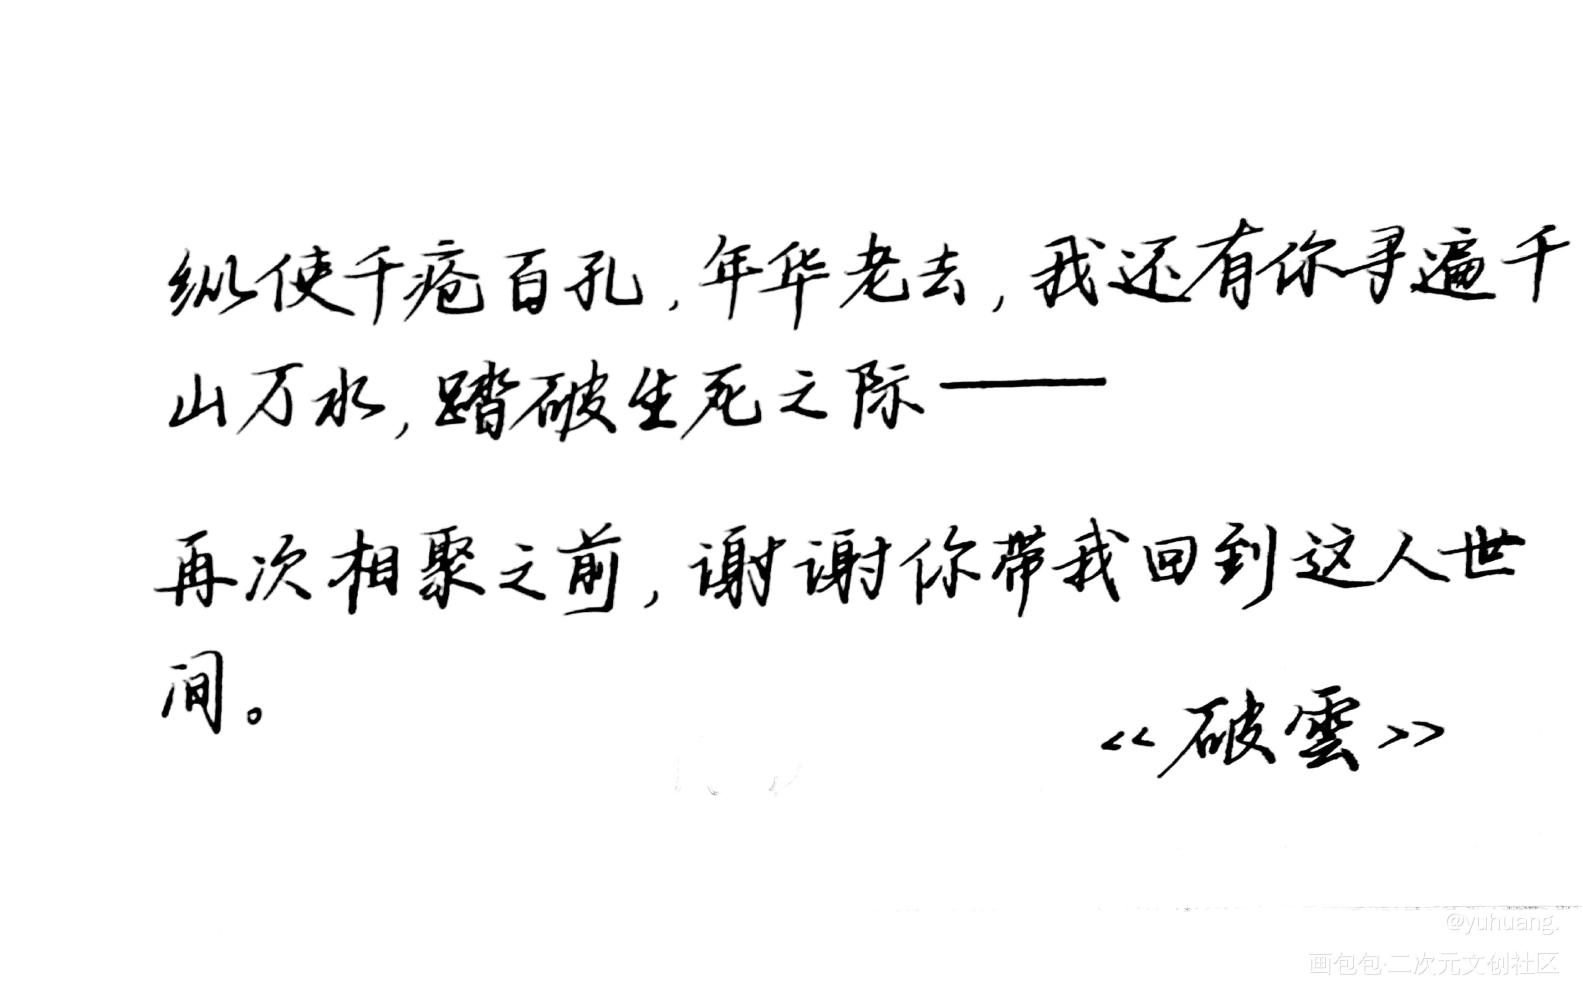 纵使千疮百孔,年华老去,我还有你寻遍千
山万水,踏破生死之际——
再次相聚之前,谢谢你带我回到这人世
间。
<<破雲>>
@yuhuang.
画包包·二次元文创社区